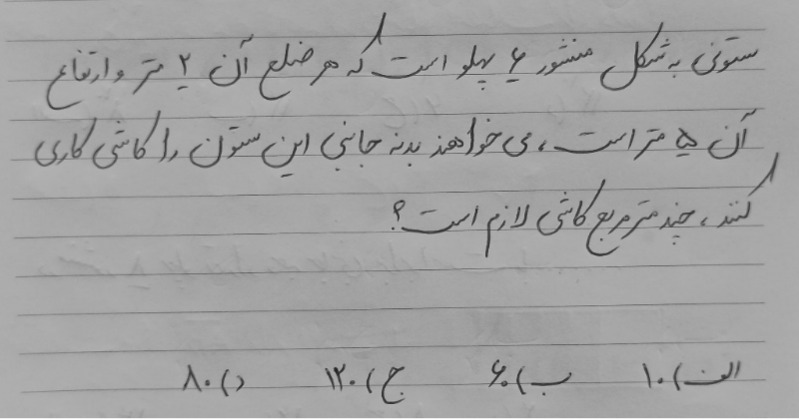 ستونی به شکل منشور ۶ پهلو است که هر ضلع آن ۲ متر و ارتفاع
آن ۵ متر است، می خواهند بدنه جانبی این ستون را کاشی کاری
کنند، چند متر مربع کاشی لازم است؟
الف) ۱۰ ب) ۶۰ ج) ۱۲۰ د) ۸۰